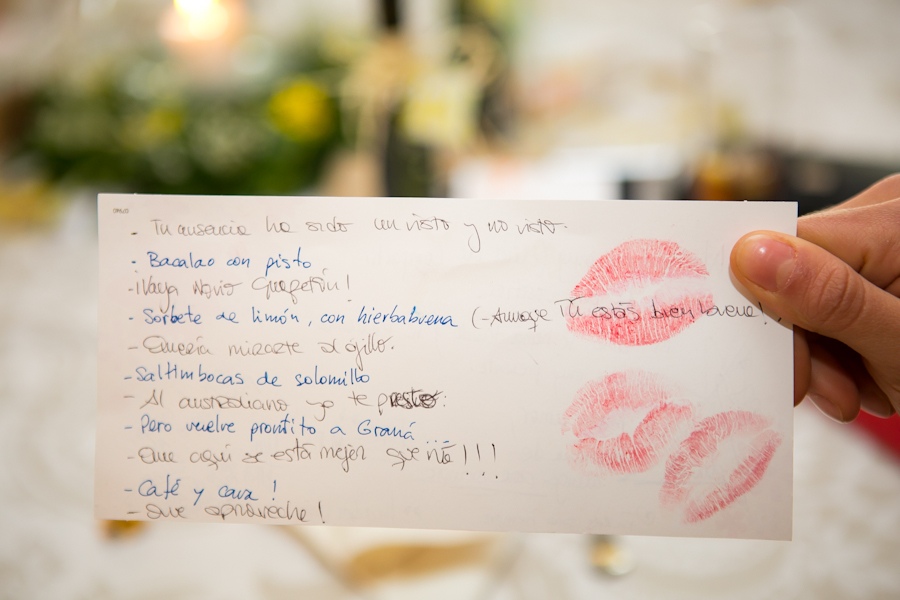 - Tu ausencia ha sido un visto y no visto.
- Bacalao con pisto
- ¡Vaya novio guapetón!
- Sorbete de limón, con hierbabuena (- Aunque Tú estás bien buena!
- Quería mirarte al ojillo.
- Saltimbocas de solomillo
- Al australiano yo te presto.
- Pero vuelve prontito a Graná
- Que aquí se está mejor que ná!!!
- Café y cava!
- Que aproveche!